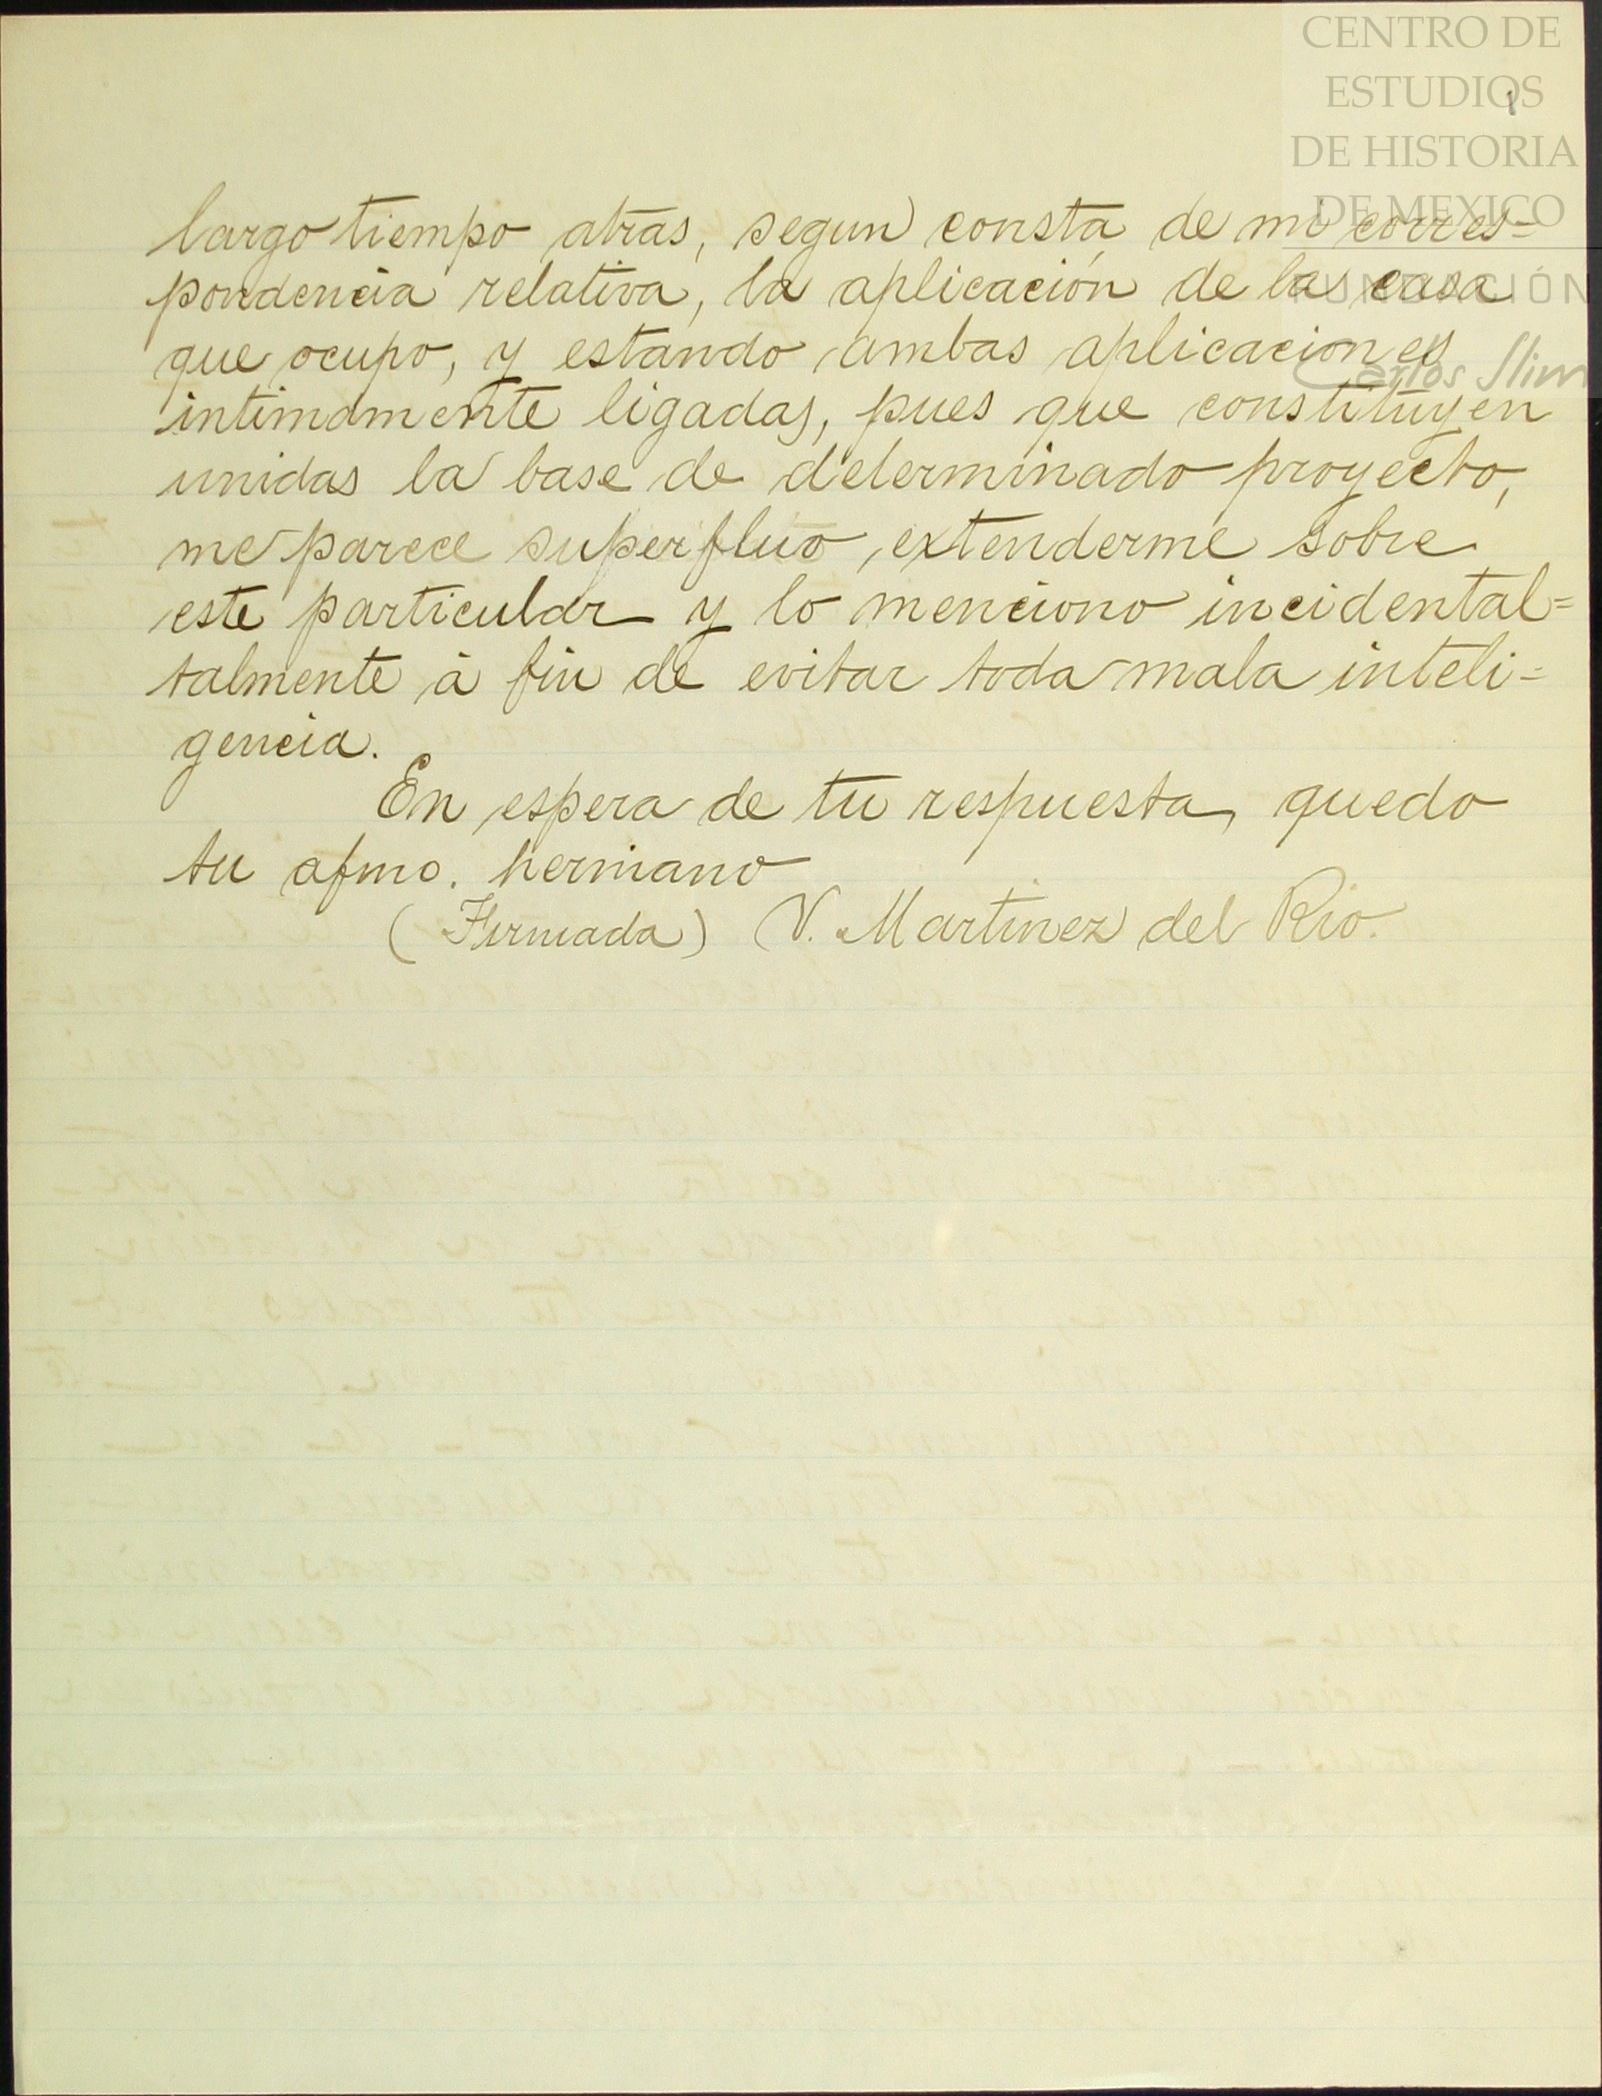 CENTRO DE
ESTUDIOS
DE HISTORIA
DE MEXICO
FUNDACIÓN
Carlos Slim
largo tiempo atrás, segun consta de mi corres=
pondencia relativa, la aplicación de la casa
que ocupo, y estando ambas aplicaciones
intimamente ligadas, pues que constituyen
unidas la base de determinado proyecto,
me parece superfluo extenderme sobre
este particular y lo menciono incidental=
talmente á fin de evitar toda mala inteli=
gencia.
En espera de tu respuesta, quedo
tu afmo. hermano
(Firmada) V. Martinez del Rio.